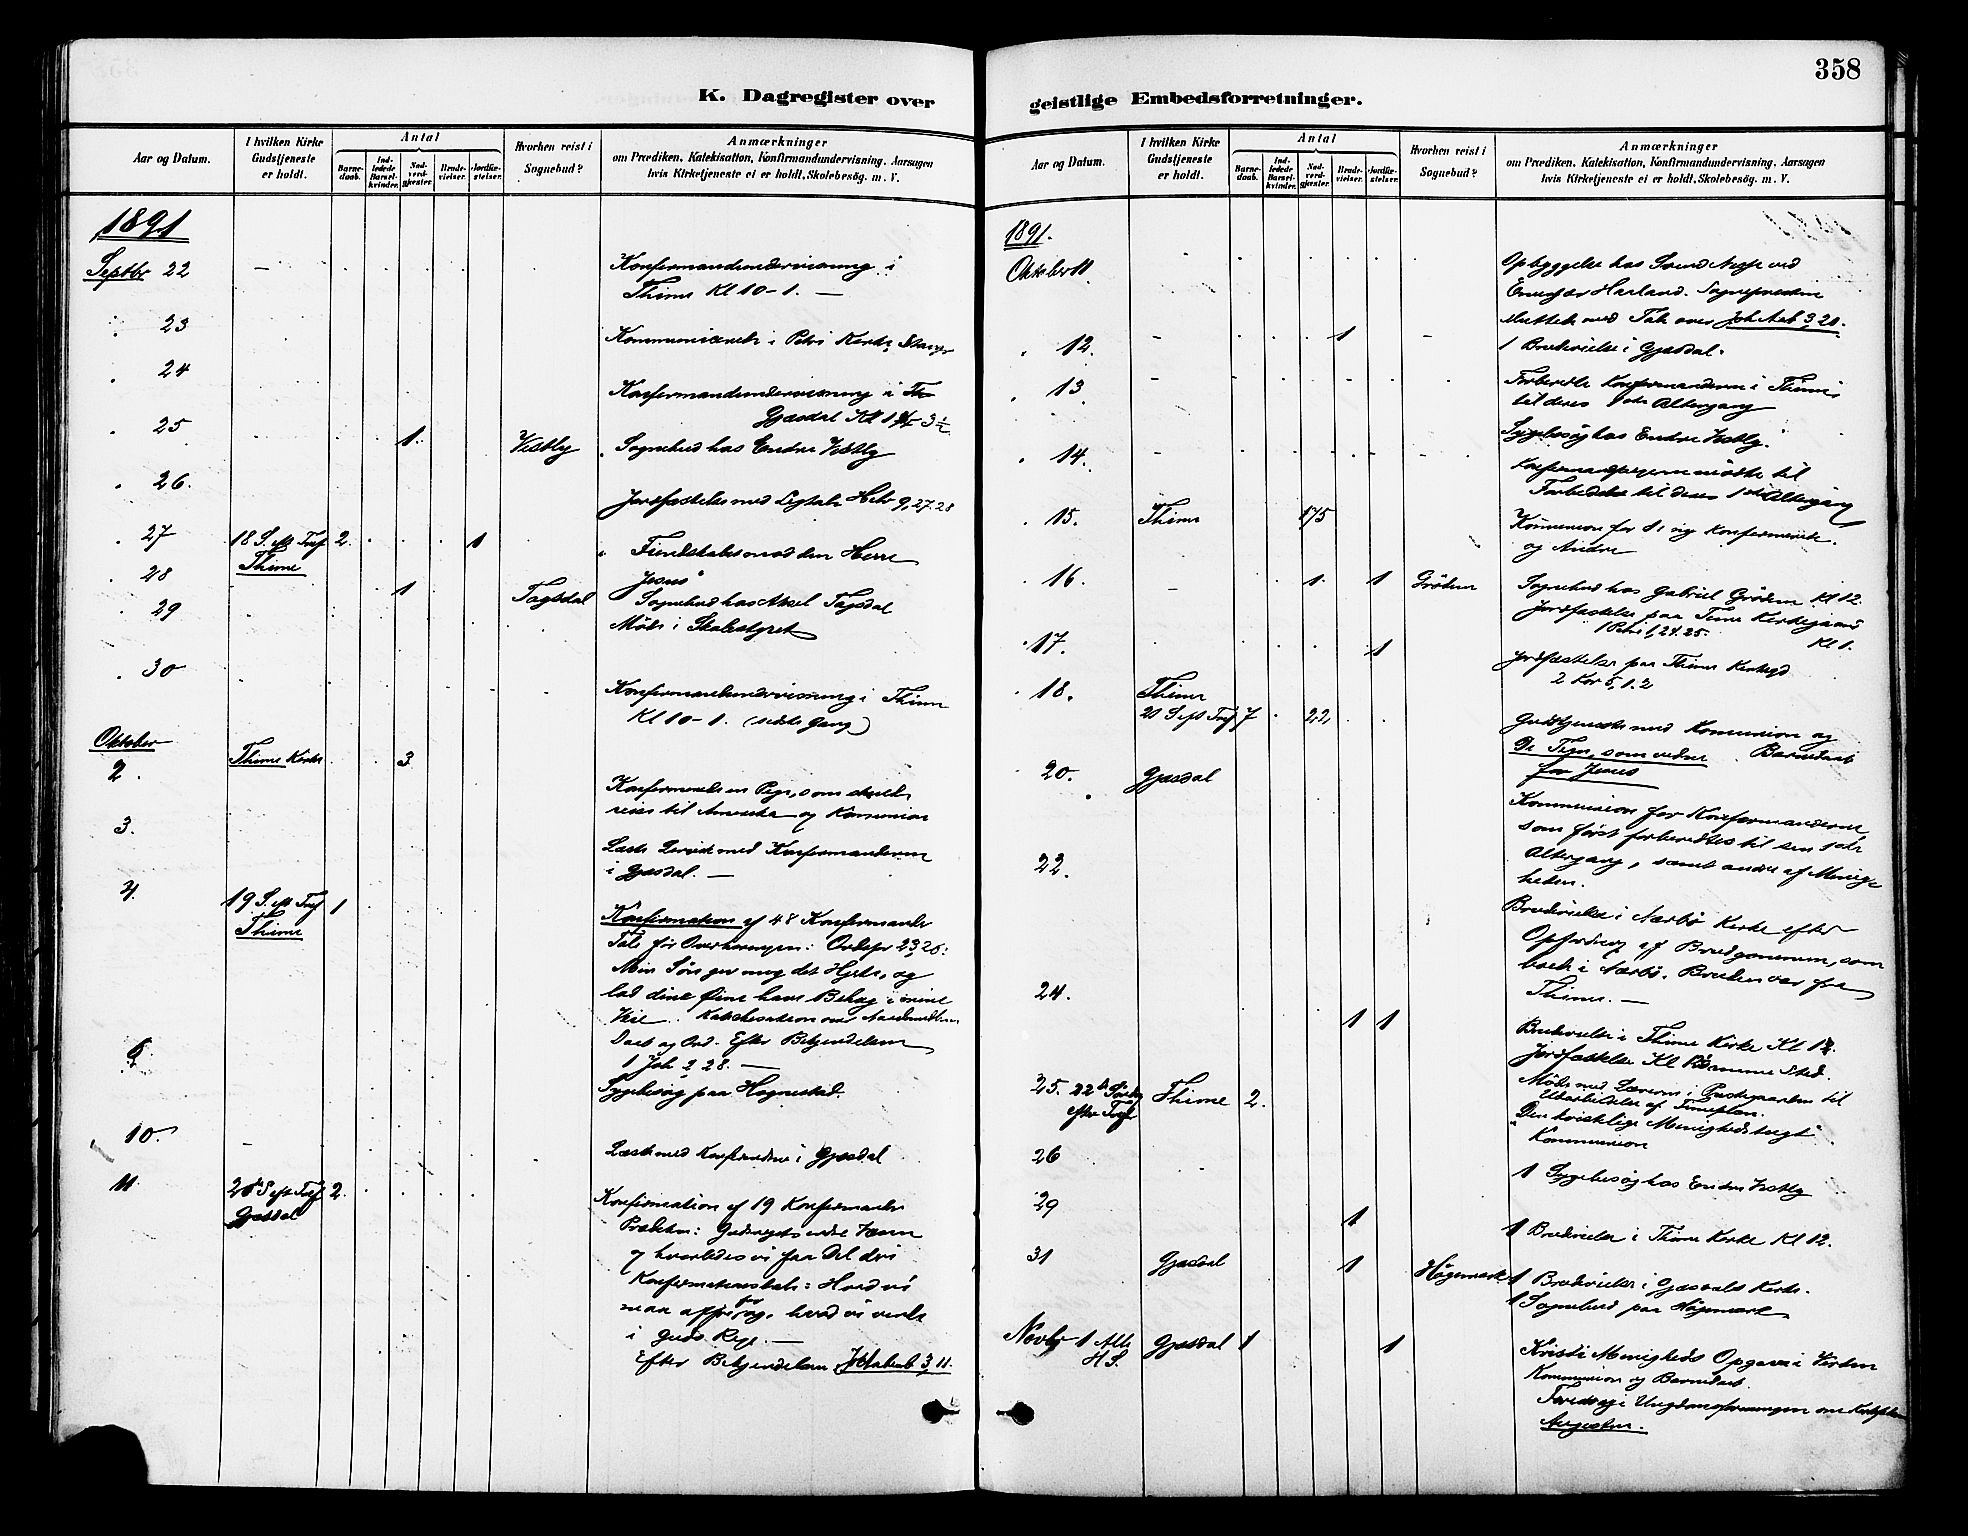 358
K. Dagregister over
geistlige Embedsforretninger.
Aar og Datum.
I hvilken Kirke Gudstjeneste er holdt.
Antal
Barnedaab.
Indledede Barselkvinder.
Nadverdgjester.
Brudevielser.
Jordfæstelser.
Hvorhen reist i Sognebud?
Anmærkninger
om Prædiken, Katekisation, Konfirmandundervisning, Aarsagen
hvis Kirketjeneste ei er holdt, Skolebesög. m. V.
1891
Septbr 22 - Konfirmandundervisning i
Thime Kl 10-1. -
23
Kommunicerede i Petri Kirke, Stavger
24
Konfirmandundervisning i
Gjæsdal Kl
25 1 Vestly Sognebud hos Endre Vestly
26.
Jordfæstelse med Ligtale Hebr 9, 27.28
27 18 S. eft Tref 2 1 Fiendskabet mod den Herre
Thime Jesus"
28 1 Tagsdal Sognebud hos Aksel Tagsdal
29 Møde i Skolestyret
30
Konfirmandundervisning i Thime
Kl 10-1. (sidste Gang)
Oktober
2. Thime Kirke 3
Konfirmeredes en Pige, som skulde
reise til Amerika og Komunion
3.
Læste med Konfirmanderne
i Gjæsdal. -
4. 19 S. eft Tref 1
Thime
Konfirmation af 48 Konfirmander
Tale før Overhøringen: Ordspr 23,26:
Min Søn giv mig dit Hjerte, og
lad dine Øine have Behag i mine
Veie. Katekisation over
Daab og Ord. Efter Bekjendelsen
1 Joh 2 28. -
9 Sygebesøg paa Hognestad.
10. - Læste med Konfirmderne i Gjæsdal
11 S. eft Tref 2.
Gjæsdal
Konfirmation af 19 Konfirmander
og hvorledes vi faa Del deri
Konfirmationstale: Hvad vi
maa
i Guds Rige. -
Efter Bekjendelsen Joh Aab 3, 11.
Aar og Datum.
I hvilken Kirke Gudstjeneste er holdt.
Antal
Barnedaab.
Indledede Barselkvinder.
Nadverdgjester.
Brudevielser.
Jordfæstelser.
Hvorhen reist i Sognebud?
Anmærkninger
om Prædiken, Katekisation, Konfirmandundervisning, Aarsagen
hvis Kirketjeneste ei er holdt, Skolebesög. m. V.
1891.
Oktober 11
Opbyggelse hos Svend ved
Harland. Sognepræsten
sluttede med Tale over Joh Aab 3,20.
12. - 1 - 1 Brudevielse i Gjæsdal.
13 - Forberedte Konfirmanderne i Thime
til deres 1ste Altergang
Sygebesøg hos Endre Vestly.
14. -
til
Forberedelse til deres 1ste Altergang
15. Thime 175 Kommunion for og Konfirmerede
og Andre
16. - 1. 1 Grödem Sognebud hos Gabriel Grödem Kl 12.
Jordfæstelse paa Time Kirkegaard
1 Petri 1, 24.25. Kl 1.
17. 1 Jordfæstelse paa Thime Kirkegd
2 Kor 5, 1.2
18. Thime
21 S eft Tref 7 22 Gudstjeneste med Komunion og
Barnedaab
De Tegn, som vidne
for Jesus
20. Gjæsdal
Kommunion for Konfirmanderne,
som først forberedtes til sin 1ste
Altergang, samt andre af Menig-
heden.
22.
Brudevielse i Nærbø Kirke efter
Opfordring af Brudgommen, som
boede i Nærbø. Bruden var fra
Thime. -
24.
1 1 Brudevielse i Thime Kirke Kl 12.
Jordfæstelse Kl samme Sted.
Møde med Lærerne i Præstegaarden til
Udarbeidelse af Timeplan.
25. 22de Söndag Thime 2. „Den kristelige Menighedstugt"
efter Tref Kommunion
26 1 Sygebesøg hos Endre Vestly
29 1 1 Brudevielse i Thime Kirke Kl 12.
31 Gjæsdal 1 Høgemark 1 Brudevielse i Gjæsdals Kirke.
1 Sognebud paa Høgemark
Novbr 1 Alle Gjæsdal 1 1
H.S.
Kristi Menigheds Opgave i Verden
Kommunion og Barnedaab.
Foredrag i Ungdomsforeningen om